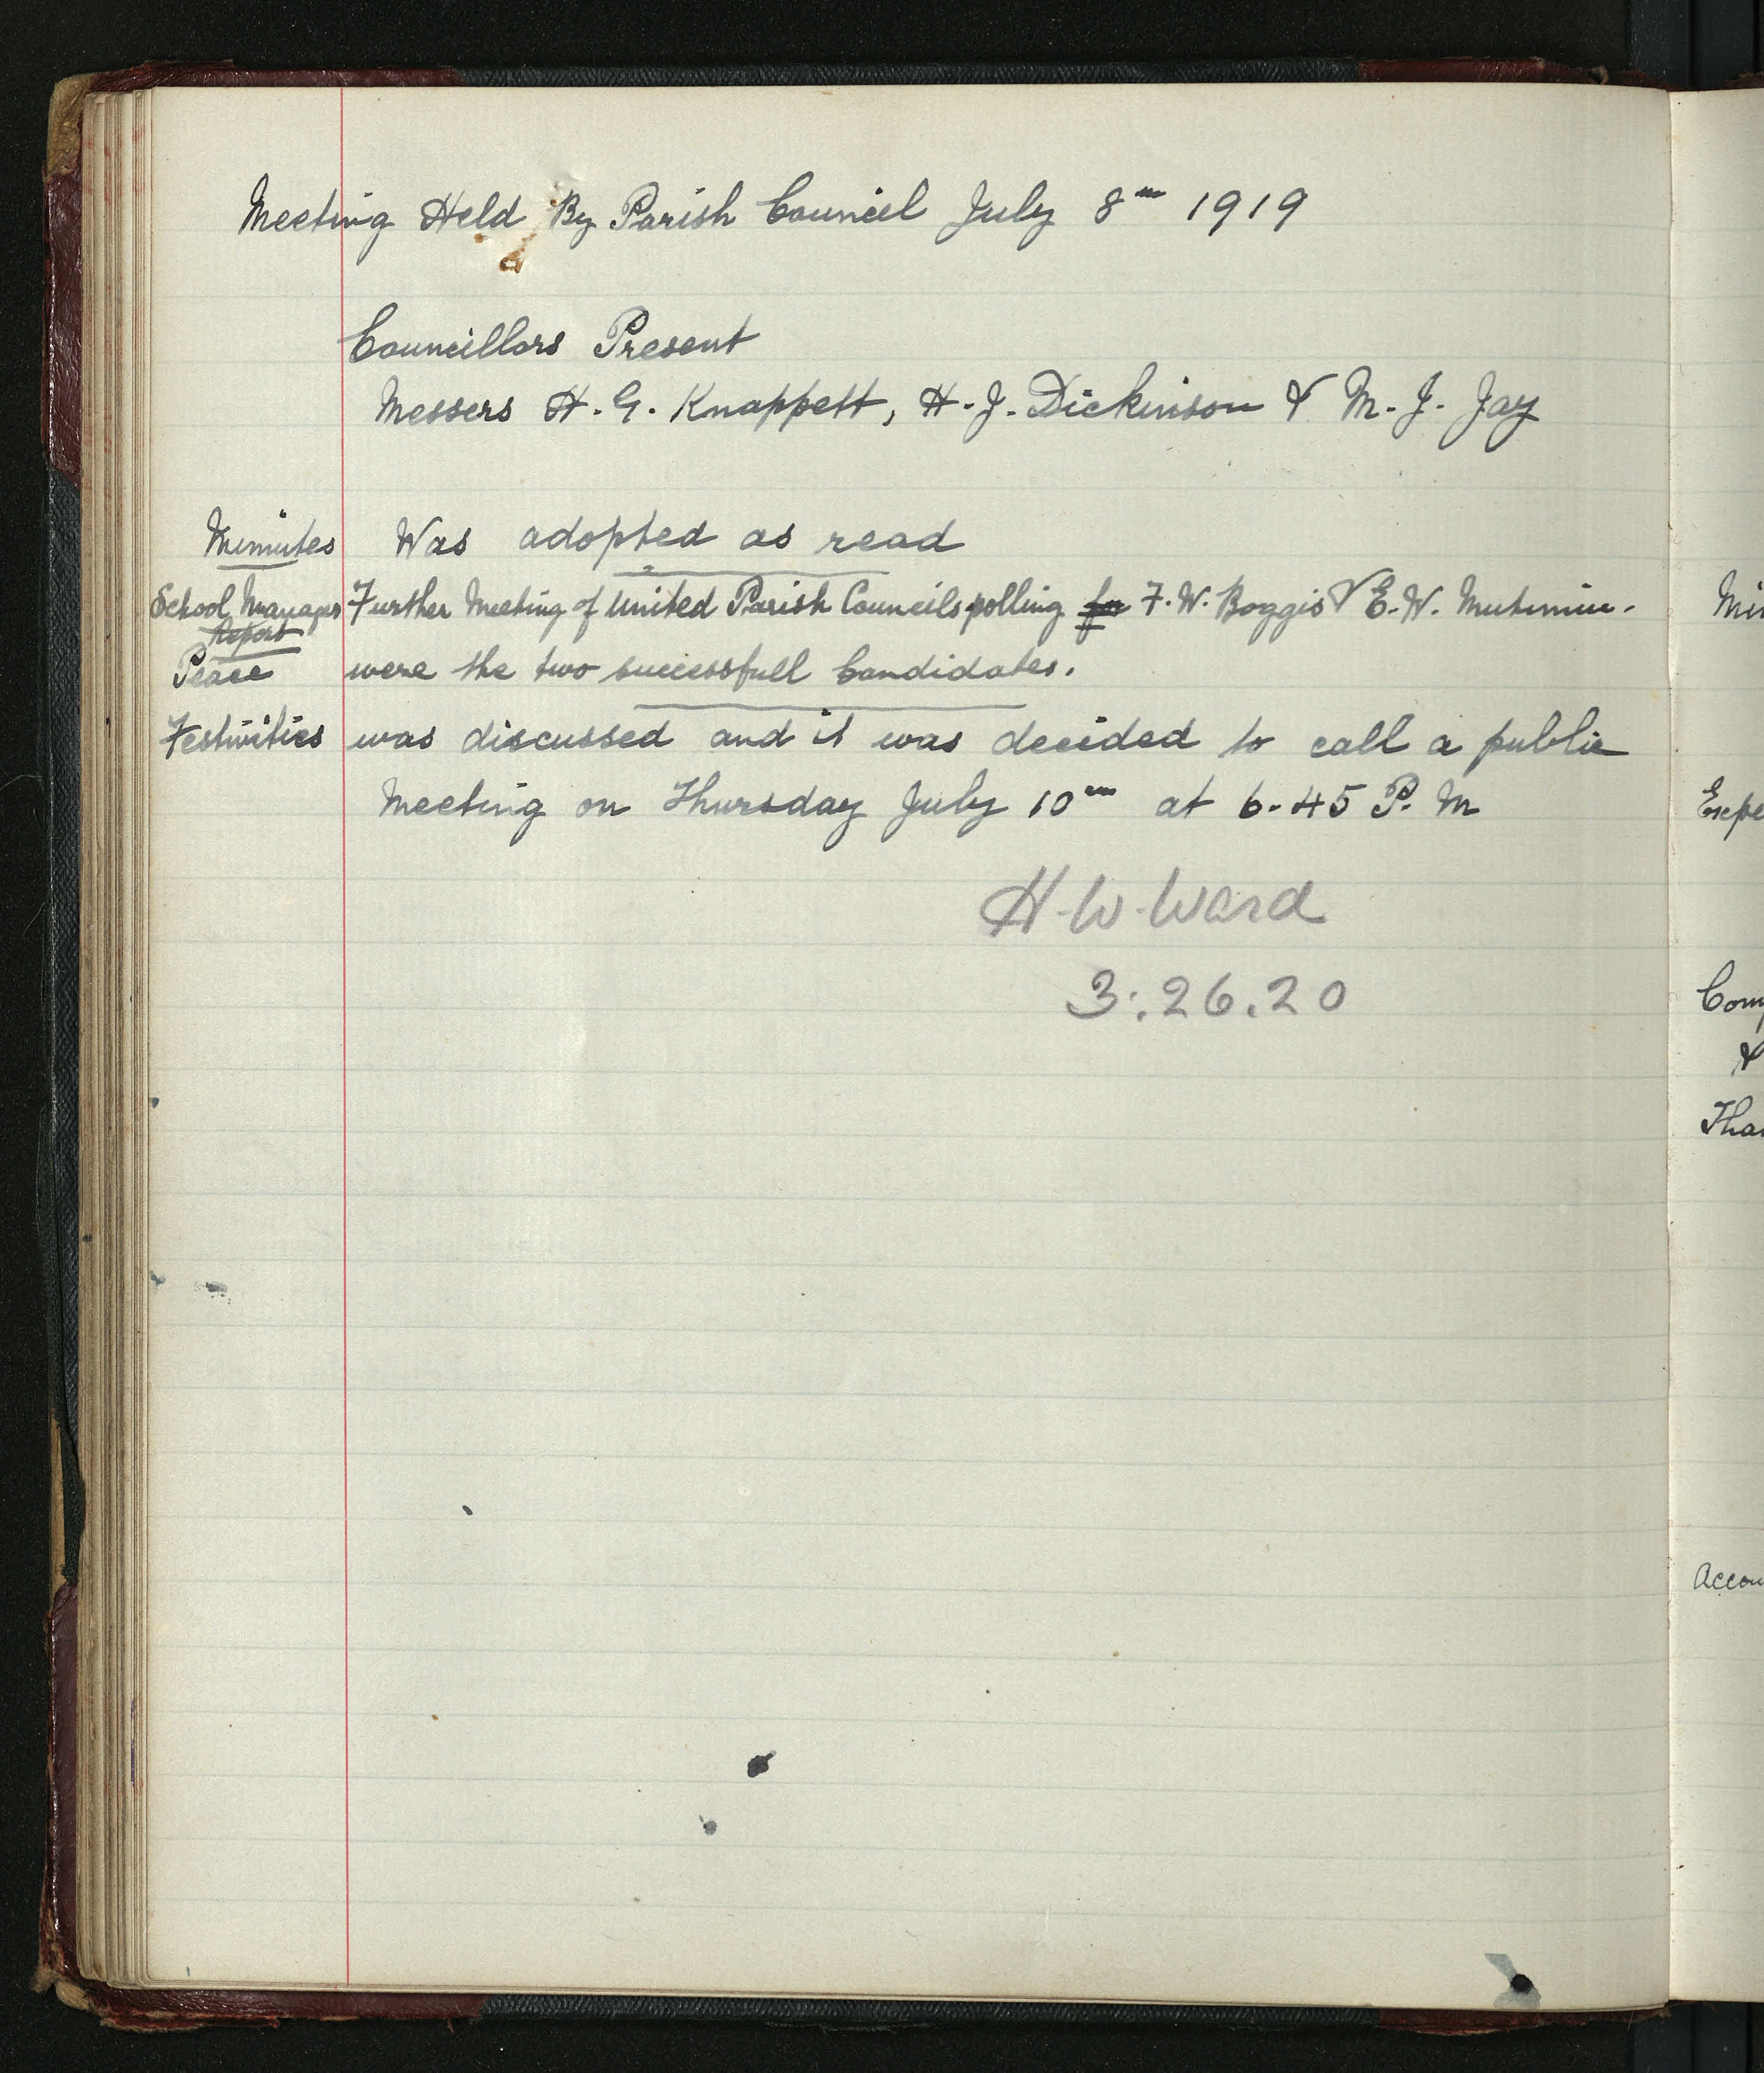 Meeting Held By Parish Council July 8th 1919
Councillors Present
Messers H. G. Knappett, H. J. Dickinson & M. J. Jay
Minutes Was adopted as read
School Manager Further Meeting of United Parish Councils polling for F. W. Boggis & E. W.
Report
Peace were the two successfull Candidates.
Festivities was discussed and it was decided to call a public
Meeting on Thursday July 10th at 6.45 P. M
H. W. Ward
3:.26.20